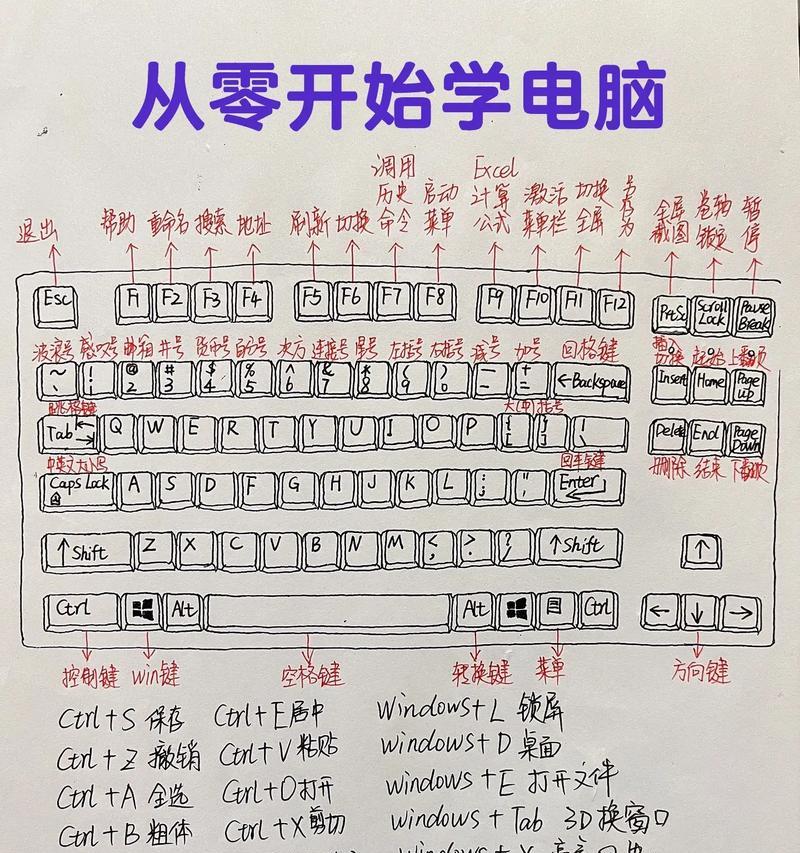 从零开始学电脑
退出 帮助 重命名 搜索 地址 刷新 切换 调用历史命令 启动菜单 Excel计算公式 激活菜单栏 切换全屏 另存为 全屏截图 卷轴锁定 暂停
Esc F1 F2 F3 F4 F5 F6 F7 F8 F9 F10 F11 F12 PrtSc Scroll Lock Pause Break
波浪号 感叹号 邮箱 井号 货币号 百分号 次方 连接号 星号 左括号 右括号 减号 加号 回格键 插入 切换 起始 上翻页
~ ` ! 1 @ 2 # 3 $ 4 % 5 ^ 6 & 7 * 8 ( 9 ) 0 — - + = ←Backspace Insert Home Page up
跳格键 大(中)括号
Tab Q W E R T Y U I O P { [ } ] | \ Delete End Page Down
中英文大小写 回车键 删除 结束 下翻页
Caps Lock A S D F G H J K L : ; " ' Enter
↑Shift Z X C V B N M < , > . ? / ↑Shift ↑
Ctrl Alt Alt Ctrl ← ↓ →
控制键 win键 空格键 转换键 菜单 方向键
Ctrl+S 保存 Ctrl+E居中 Windows+L 锁屏
Ctrl+Z 撤销 Ctrl+V粘贴 Windows+D 桌面
Ctrl+A 全选 Ctrl+O打开 windows+E 打开文件
Ctrl+B 粗体 Ctrl+X剪切 windows+Tab 3D换窗口